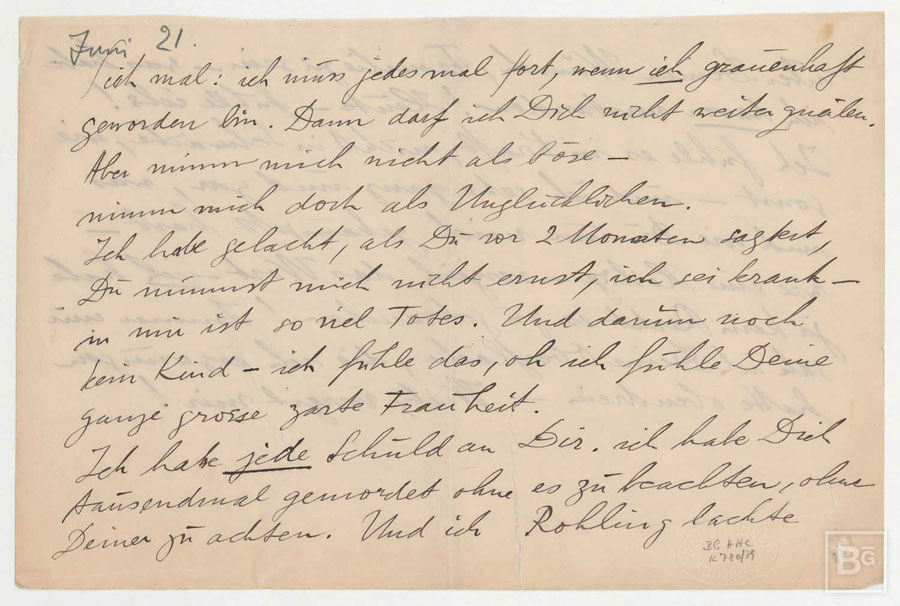 Juni 21.
ich mal: ich muss jedesmal fort, wenn ich grauenhaft
geworden bin. Dann darf ich Dich nicht weiter quälen.
Aber nimm mich nicht als böse –
nimm mich doch als Unglücklichen.
Ich habe gelacht, als Du vor 2 Monaten sagtest,
Du nimmst mich nicht ernst, ich sei krank –
in mir ist so viel Totes. Und darum noch
kein Kind – ich fühle das, oh ich fühle Deine
ganze grosse zarte Frauheit.
Ich habe jede Schuld an Dir. ich habe Dich
tausendmal gemordet ohne es zu beachten, ohne
Deiner zu achten. Und ich Rohling lachte
BG HHC
K 780/79
BG